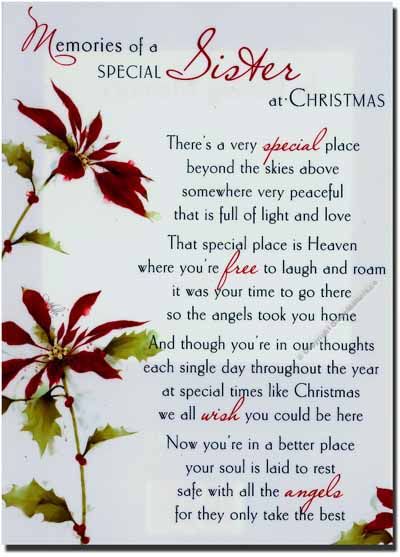 Memories of a
SPECIAL Sister
at CHRISTMAS
There's a very special place
beyond the skies above
somewhere very peaceful
that is full of light and love
That special place is Heaven
where you're free to laugh and roam
it was your time to go there
so the angels took you home
And though you're in our thoughts
each single day throughout the year
at special times like Christmas
we all wish you could be here
Now you're in a better place
your soul is laid to rest
safe with all the angels
for they only take the best